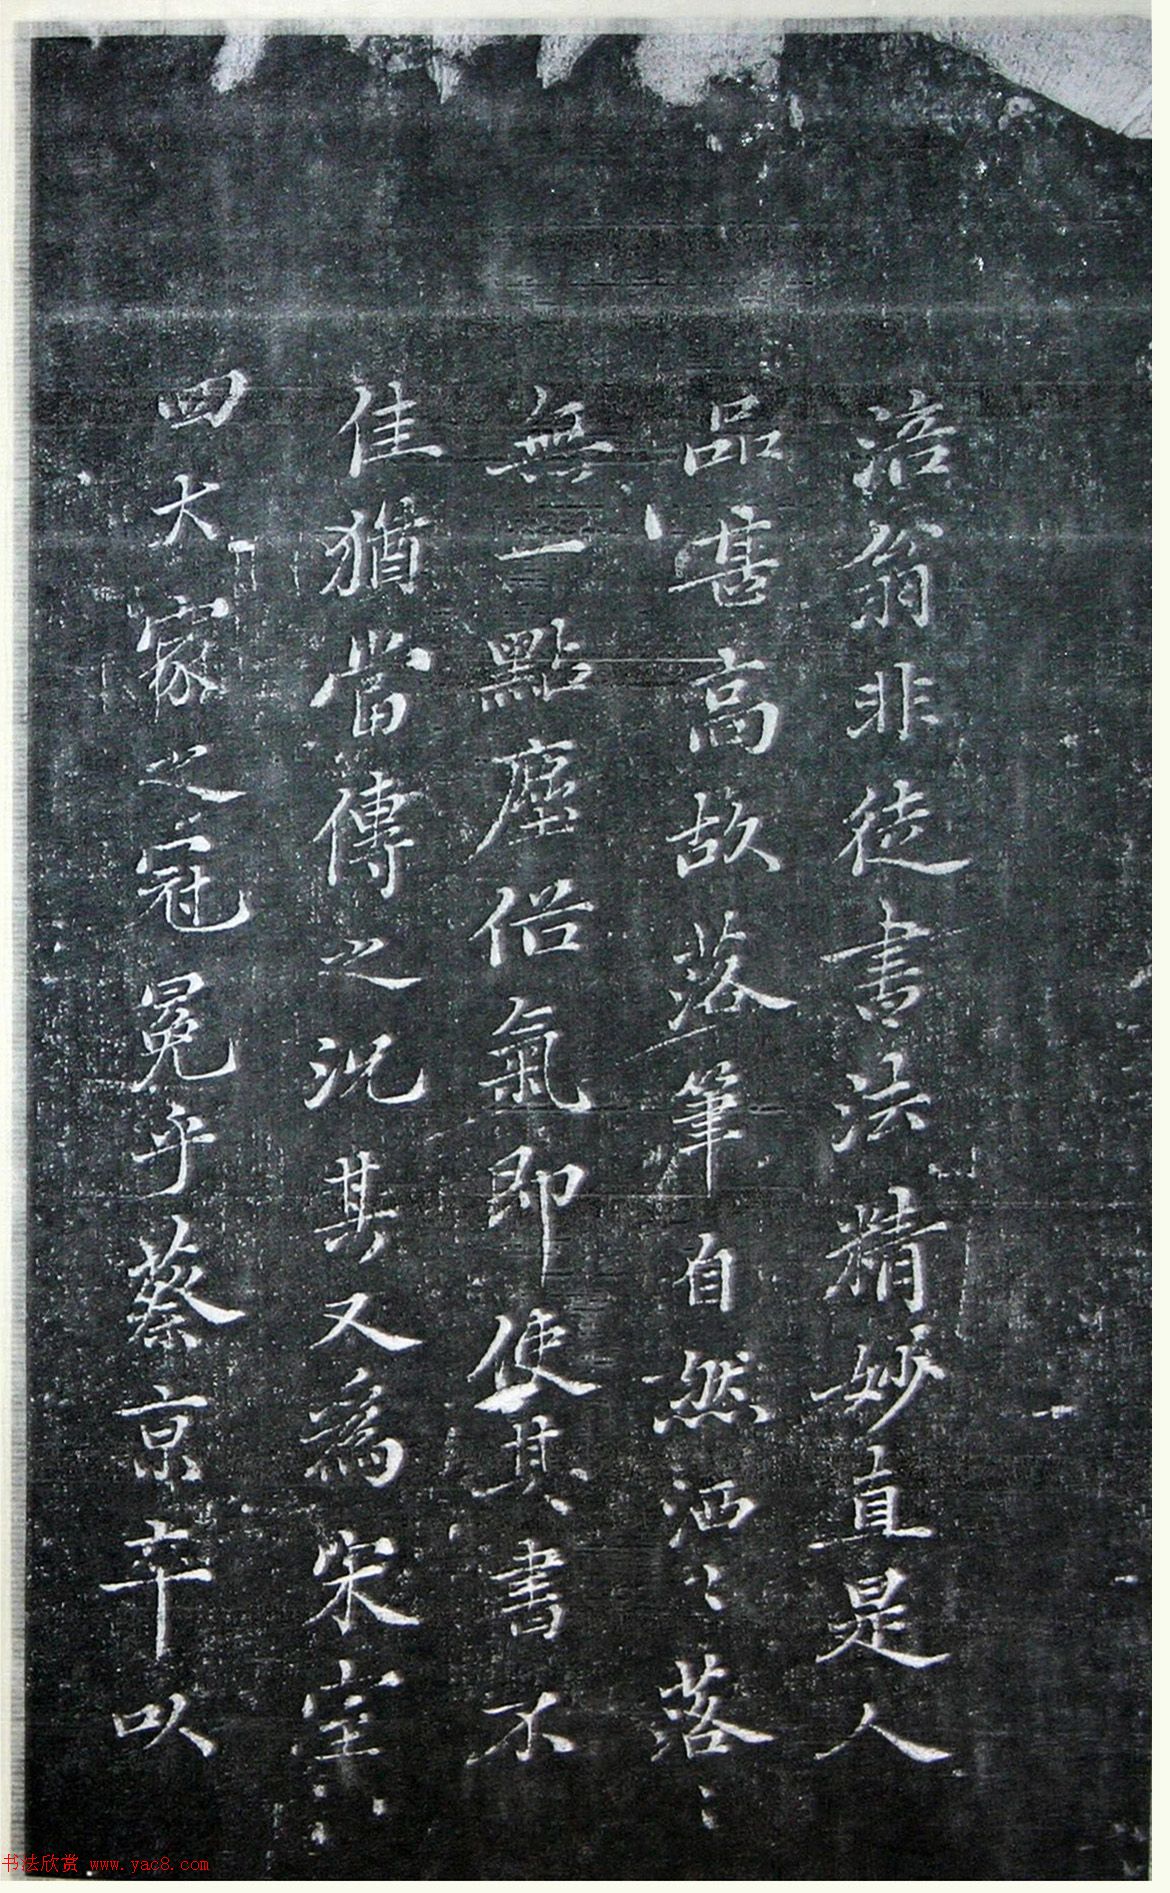 涪翁非徒書法精妙直是人
品甚高故落筆自然洒〻落〻
無一點塵俗氣即使其書不
佳猶當傳之況其又為宋室
四大家之冠冕乎蔡京卒以
书法欣赏 www.yac8.com